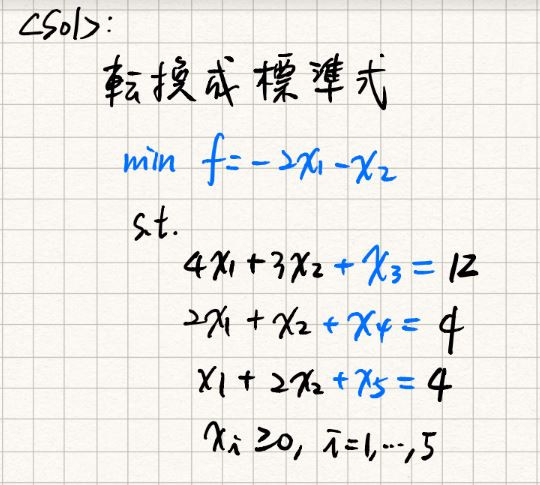 <Sol>:
転換成標準式
min f=-2x₁-x₂
s.t.
4x₁+3x₂+x₃=12
2x₁+x₂+x₄=4
x₁+2x₂+x₅=4
xᵢ≥0, i=1,…,5